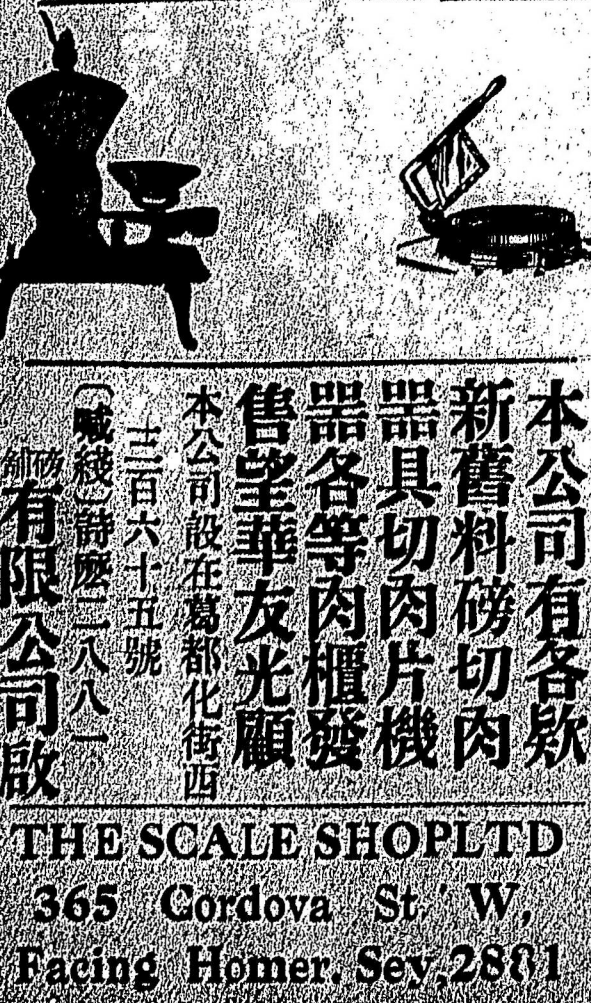 本公司有各欵
新舊料磅切肉
器具切肉片機
器各等肉櫃發
售望華友光顧
本公司設在葛都化街西
士三百六十五號
(喊綫)詩麽二八八一
磅舖有限公司啟
THE SCALE SHOPLTD
365 Cordova St. W,
Facing Homer. Sey,2881